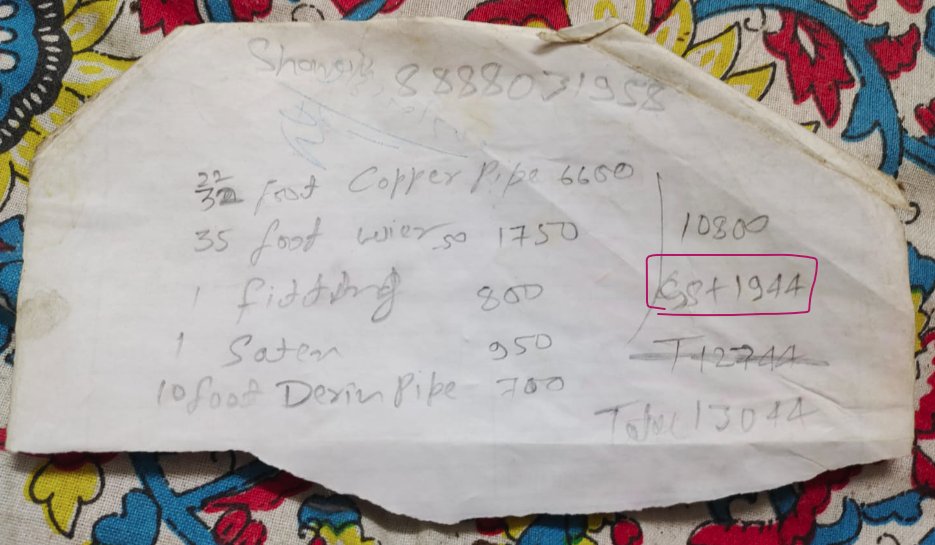 8888031958
22
32 foot Copper Pipe 6600
35 foot wier 50 1750
1 fitting 800
1 Saten 950
10 foot Derin Pipe 700
10800
Gst 1944
T 12744
Total 13044